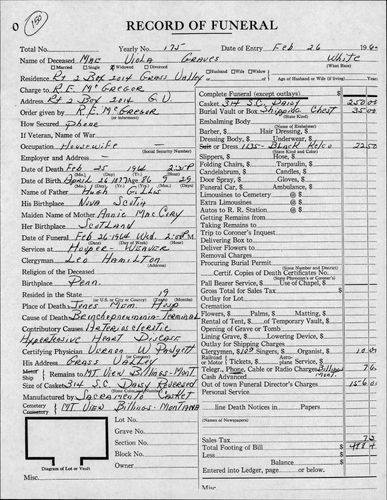 O 150
RECORD OF FUNERAL
Total No. Yearly No. 175 Date of Entry Feb 26 196
Name of Deceased Mae Viola Graves White
Married Single Widowed Divorced (What Race)
Residence Rt 2 Box 2014 Grass Valley Husband Wife Widow
Age of Husband or Wife (if living) Years
Charge to R.E. McGregor
Address Rt 2 Box 2014 G.V.
Order given by R.E. McGregor
How Secured Phone
If Veteran, Name of War
Occupation Housewife
(Social Security Number)
Employer and Address
Date of Death Feb 25 1964 2:25 P.M.
Date of Birth April 26 1877 Age 86 9 29
Name of Father Hugh Gillis
His Birthplace Nova Scotia
Maiden Name of Mother Annie MacCory
Her Birthplace Scotland
Date of Funeral Feb 26 1964 Wed. 2:00 P.M.
Services at Hooper-Weaver
Clergyman Leo Hamilton
Religion of the Deceased
Birthplace Penn.
Resided in the State 19
Place of Death Jones Mem. Hosp
Cause of Death Bronchopneumonia-Terminal
Contributory Causes Arteriosclerotic
Hypertensive Heart Disease
Certifying Physician Vernon W Padgett
His Address Grass Valley
Ship Remains to Mt View Billings-Mont
Size of Casket 314 S.C. Daisy Reversed
Manufactured by Sacramento Casket
Cemetery Mt View Billings-Montana
Crematory
Lot No.
Grave No.
Section No.
Block No.
Owner
Diagram of Lot or Vault
Misc.
Complete Funeral (except outlays) $
Casket 314 S.C. Daisy 250 00
Burial Vault or Box Shipping Chest 35 00
(State Kind)
Embalming Body
(Name of Embalmer)
Barber, $ Hair Dressing, $
Dressing Body, $ Underwear, $
Suit or Dress 1135-Black Relco 22 50
(State Kind and Color)
Slippers, $ Hose, $
Folding Chairs, $ Tarpaulin, $
Candelabrum, $ Candles, $
Door Spray, $ Gloves, $
Funeral Car, $ Ambulance, $
Limousines to Cemetery @ $
Extra Limousines @ $
Autos to R. R. Station @ $
Getting Remains from
Taking Remains to
Trip to Coroner's Inquest
Delivering Box to
Deliver Flowers to
Removal Charges
Procuring Burial Permit
Certif. Copies of Death Certificates No.
Pall Bearer Service, $ Use of Chapel, $
Gross Total for Sales Tax $
Outlay for Lot
Cremation
Flowers, $ Palms, $ Matting, $
Rental of Tent, $ of Temporary Vault, $
Opening of Grave or Tomb
Lining Grave, $ Lowering Device, $
Outlay for Shipping Charges
Clergymen, $10.00 Singers, $ Organist, $ 10 00
Railroad or Motor Tickets, $ Aeroplane Service, $
Telegr., Phone, Cable or Radio Charges Billings Mont.
Cash Advanced
Out of town Funeral Director's Charges
line Death Notices in Papers
Sales Tax
Total Footing of Bill $
Less $
Balance $
Entered into Ledger, page or below.
Misc.